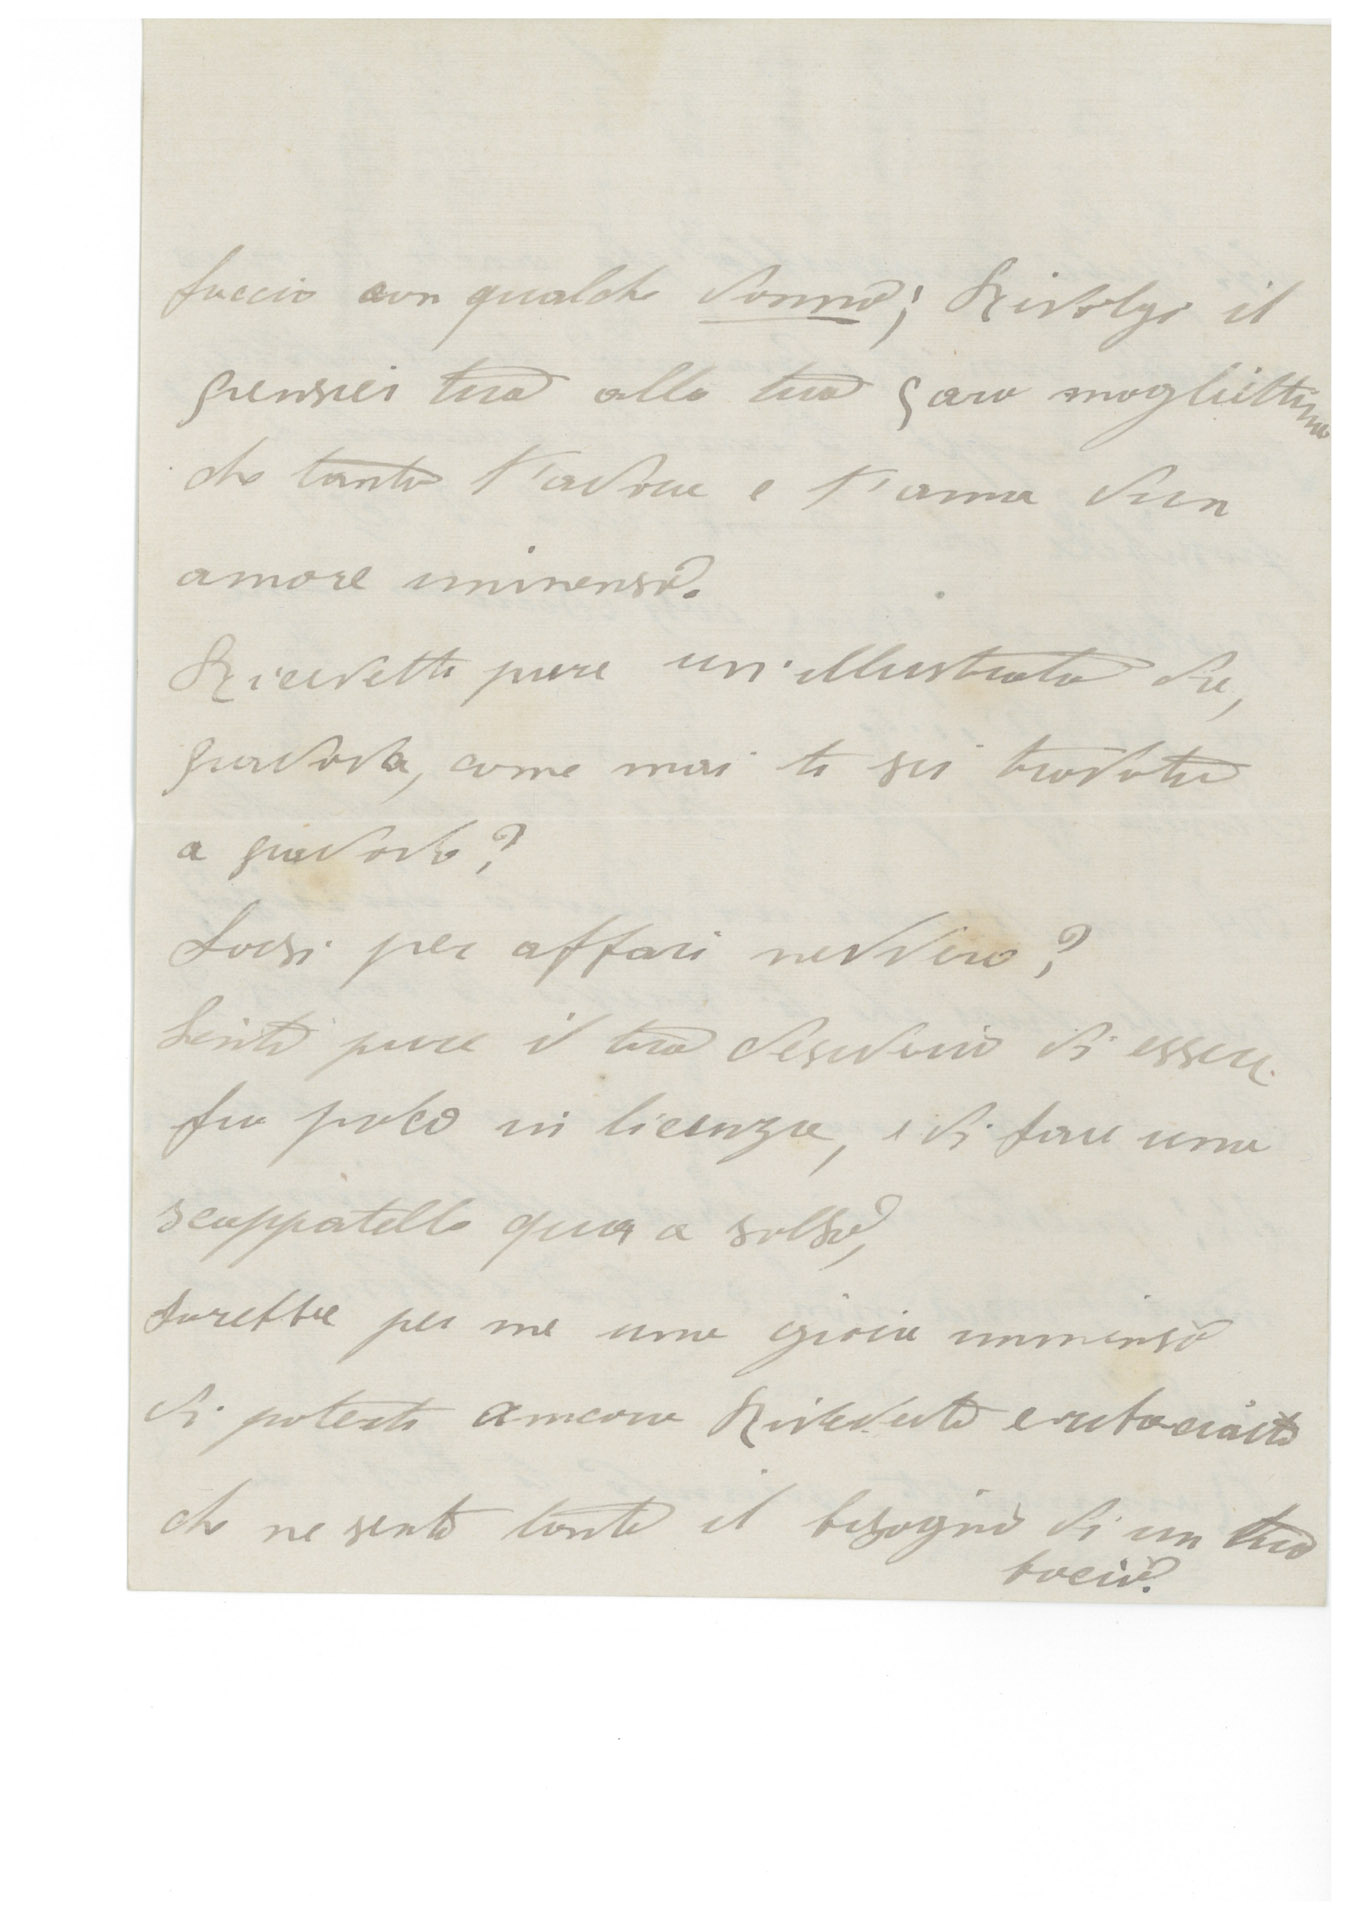 faccia con qualche donna; Rivolgi il
pensier tuo alla tua cara mogliettina
che tanto t'adora e t'ama d'un
amore immenso.
Ricevetti pure un'illustrata di,
Padova, come mai ti sei trovato
a Padova?
Forsi per affari nevvero?
Sento pure il tuo desiderio di essere
fra poco in licenza, e di fare una
scappatella qua a Salsò,
Sarebbe per me una gioia immensa
di poterti ancora Rivederti e ribaciarti
che ne sento tanto il bisogno di un tuo
bacio.